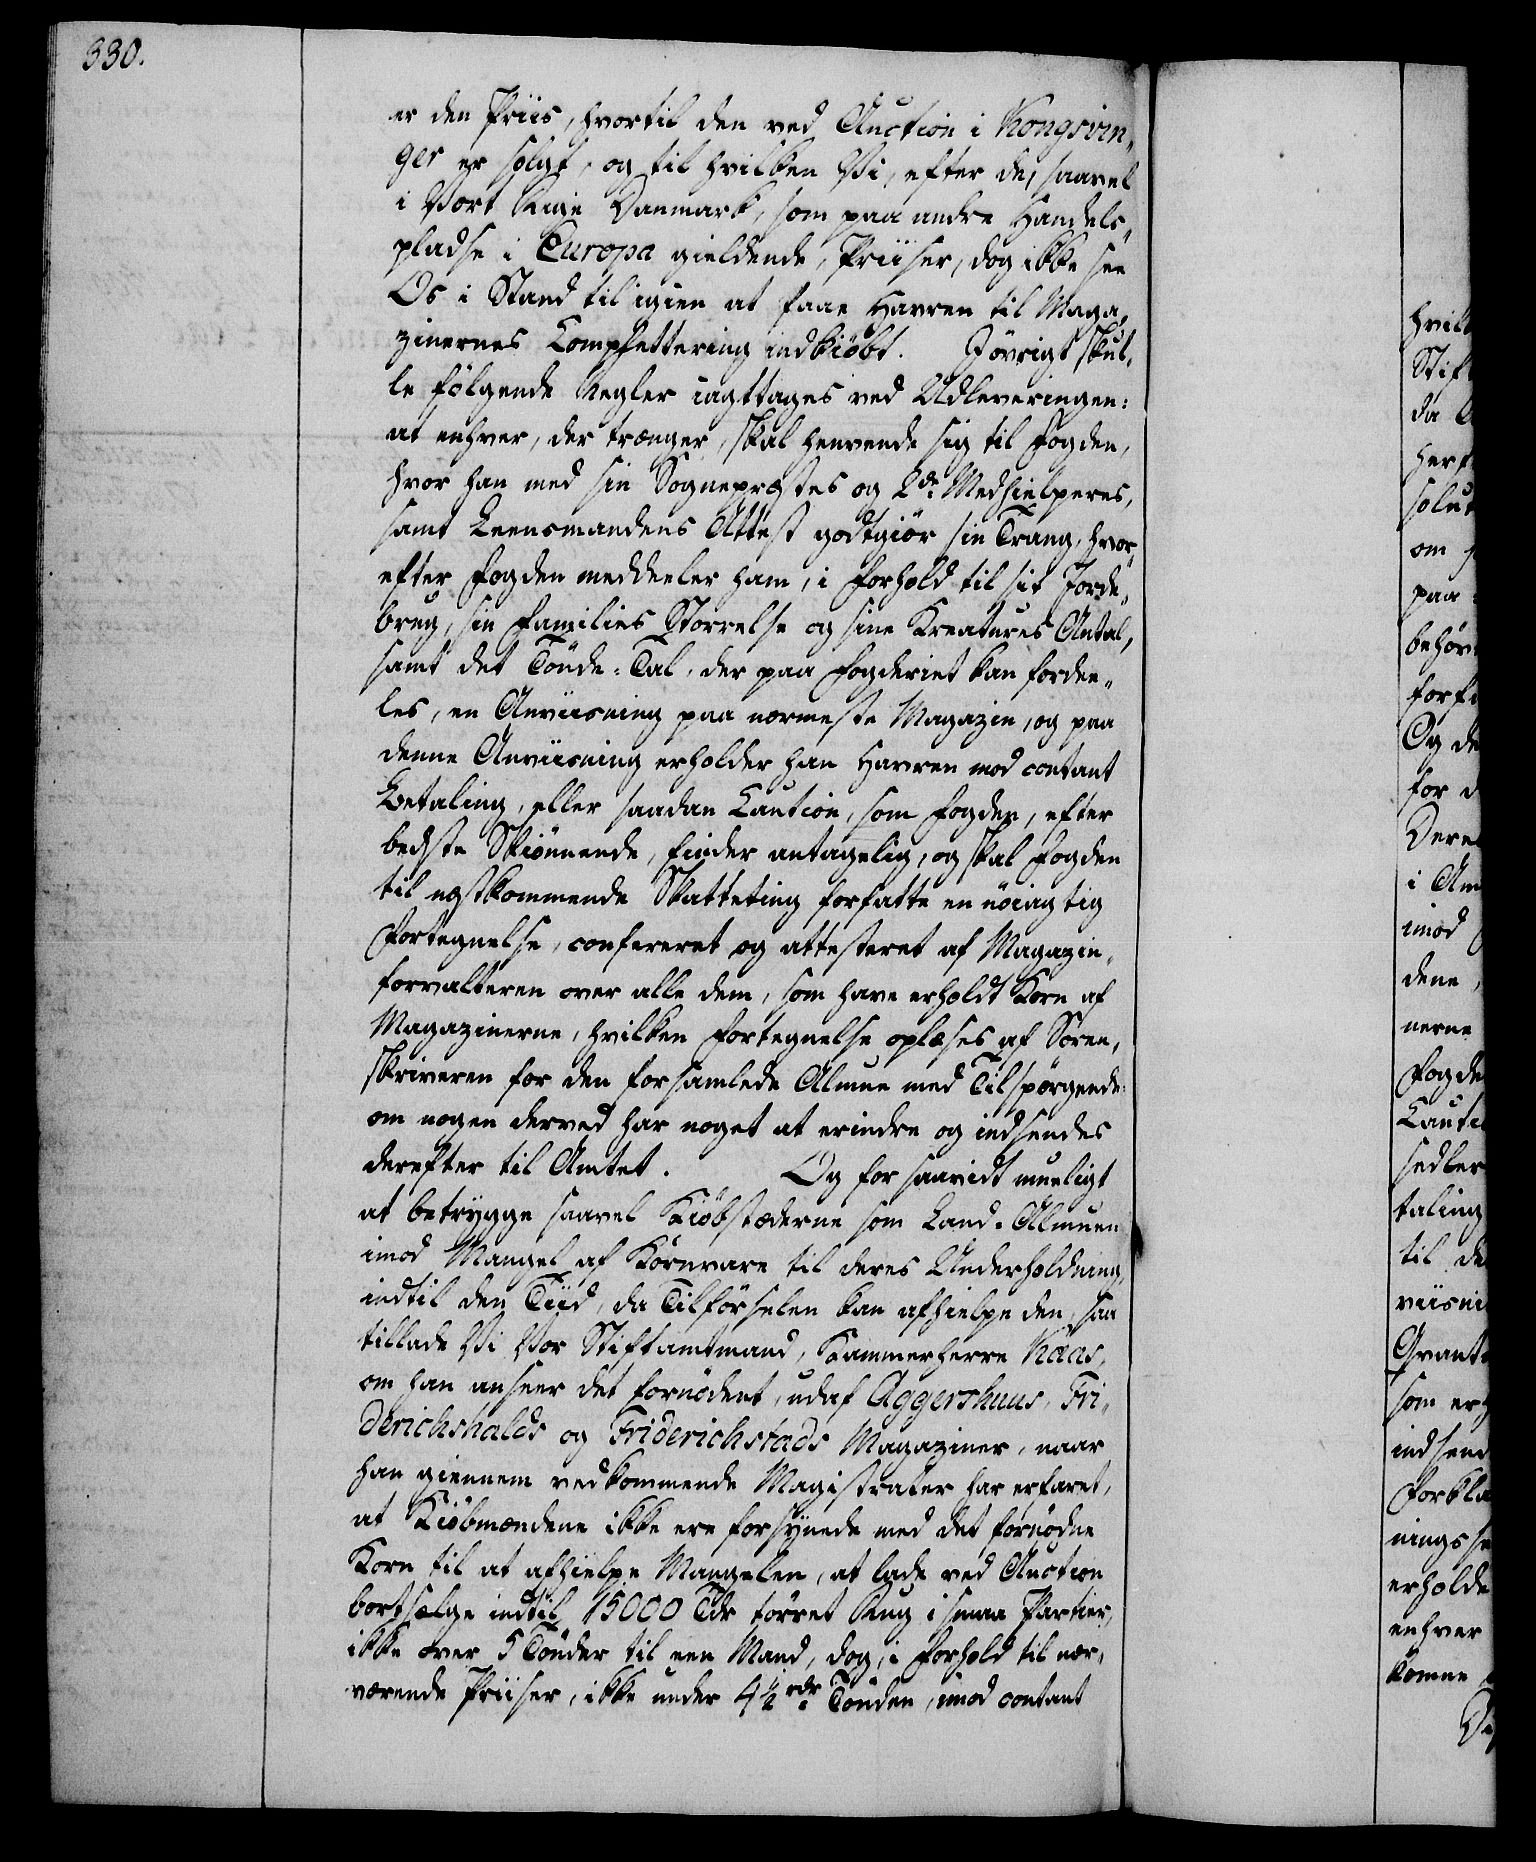 330.
er den Priis, hvortil den ved Auction i Kongsvin„
ger er solgt, og til hvilken Vi, efter de, saavel
i Vort Rige Danmark, som paa andre Handels„
pladse i Europa gieldende, Priiser, dog ikke see
Os i Stand til igien at faae Havren til Maga„
zinernes Complettering indkiöbt. Jövrigt skul„
le fölgende Regler iagttages ved Udleveringen:
at enhver, der trænger, skal henvende sig til Fogden,
hvor han med sin Sognepræstes og 2de Medhielperes,
samt Leensmandens Attest godtgiör sin Trang, hvor„
efter Fogden meddeeler ham, i Forhold til sit Jorde„
brug, sin Families Størrelse og sine Kreatures Antal,
samt det Tönde-Tal, der paa Fogderiet kan fordee„
les, en Anviisning paa nærmeste Magazin, og paa
denne Anviisning erholder han Havren mod contant
Betaling, eller saadan Caution, som Fogden, efter
bedste Skiönnende, finder antagelig, og skal Fogden
til næstkommende Skatteting forfatte en nöiagtig
Fortegnelse, confereret og attesteret af Magazin„
forvalteren over alle dem, som have erholdt Korn af
Magazinerne, hvilken Fortegnelse oplæses af Soren„
skriveren for den forsamlede Almue med Tilspörgende:
om nogen derved har noget at erindre og indsendes
derefter til Amtet. Og for saavidt mueligt
at betrygge saavel Kiöbstæderne som Land-Almuen
imod Mangel af Kornvare til deres Underholdning,
indtil den Tiid, da Tilförselen kan afhielpe den, saa
tillade Vi Vor Stiftamtmand, Kammerherre Kaas,
om han anseer det fornödent, udaf Aggershuus, Fri„
derichshalds og Friderichstads Magaziner, naar
han giennem vedkommende Magistrater har erfaret,
at Kiöbmændene ikke ere forsynede med det fornödne
Korn til at afhielpe Mangelen, at lade ved Auction
bortsælge indtil 15000 Tdr törret Rug i smaa Partier,
ikke over 5 Tönder til een Mand, dog, i Forhold til nær„
værende Priiser, ikke under 4½ rdr Tönden, imod contant
Stif
da
solut
om
paa
behöv
Og de
for d
i Am
imod
dene,
nerne
Fogde
Cauti
sedler
taling
til de
viisni
som erh
indsend
Forkla
nings
erholde
enhver
komne